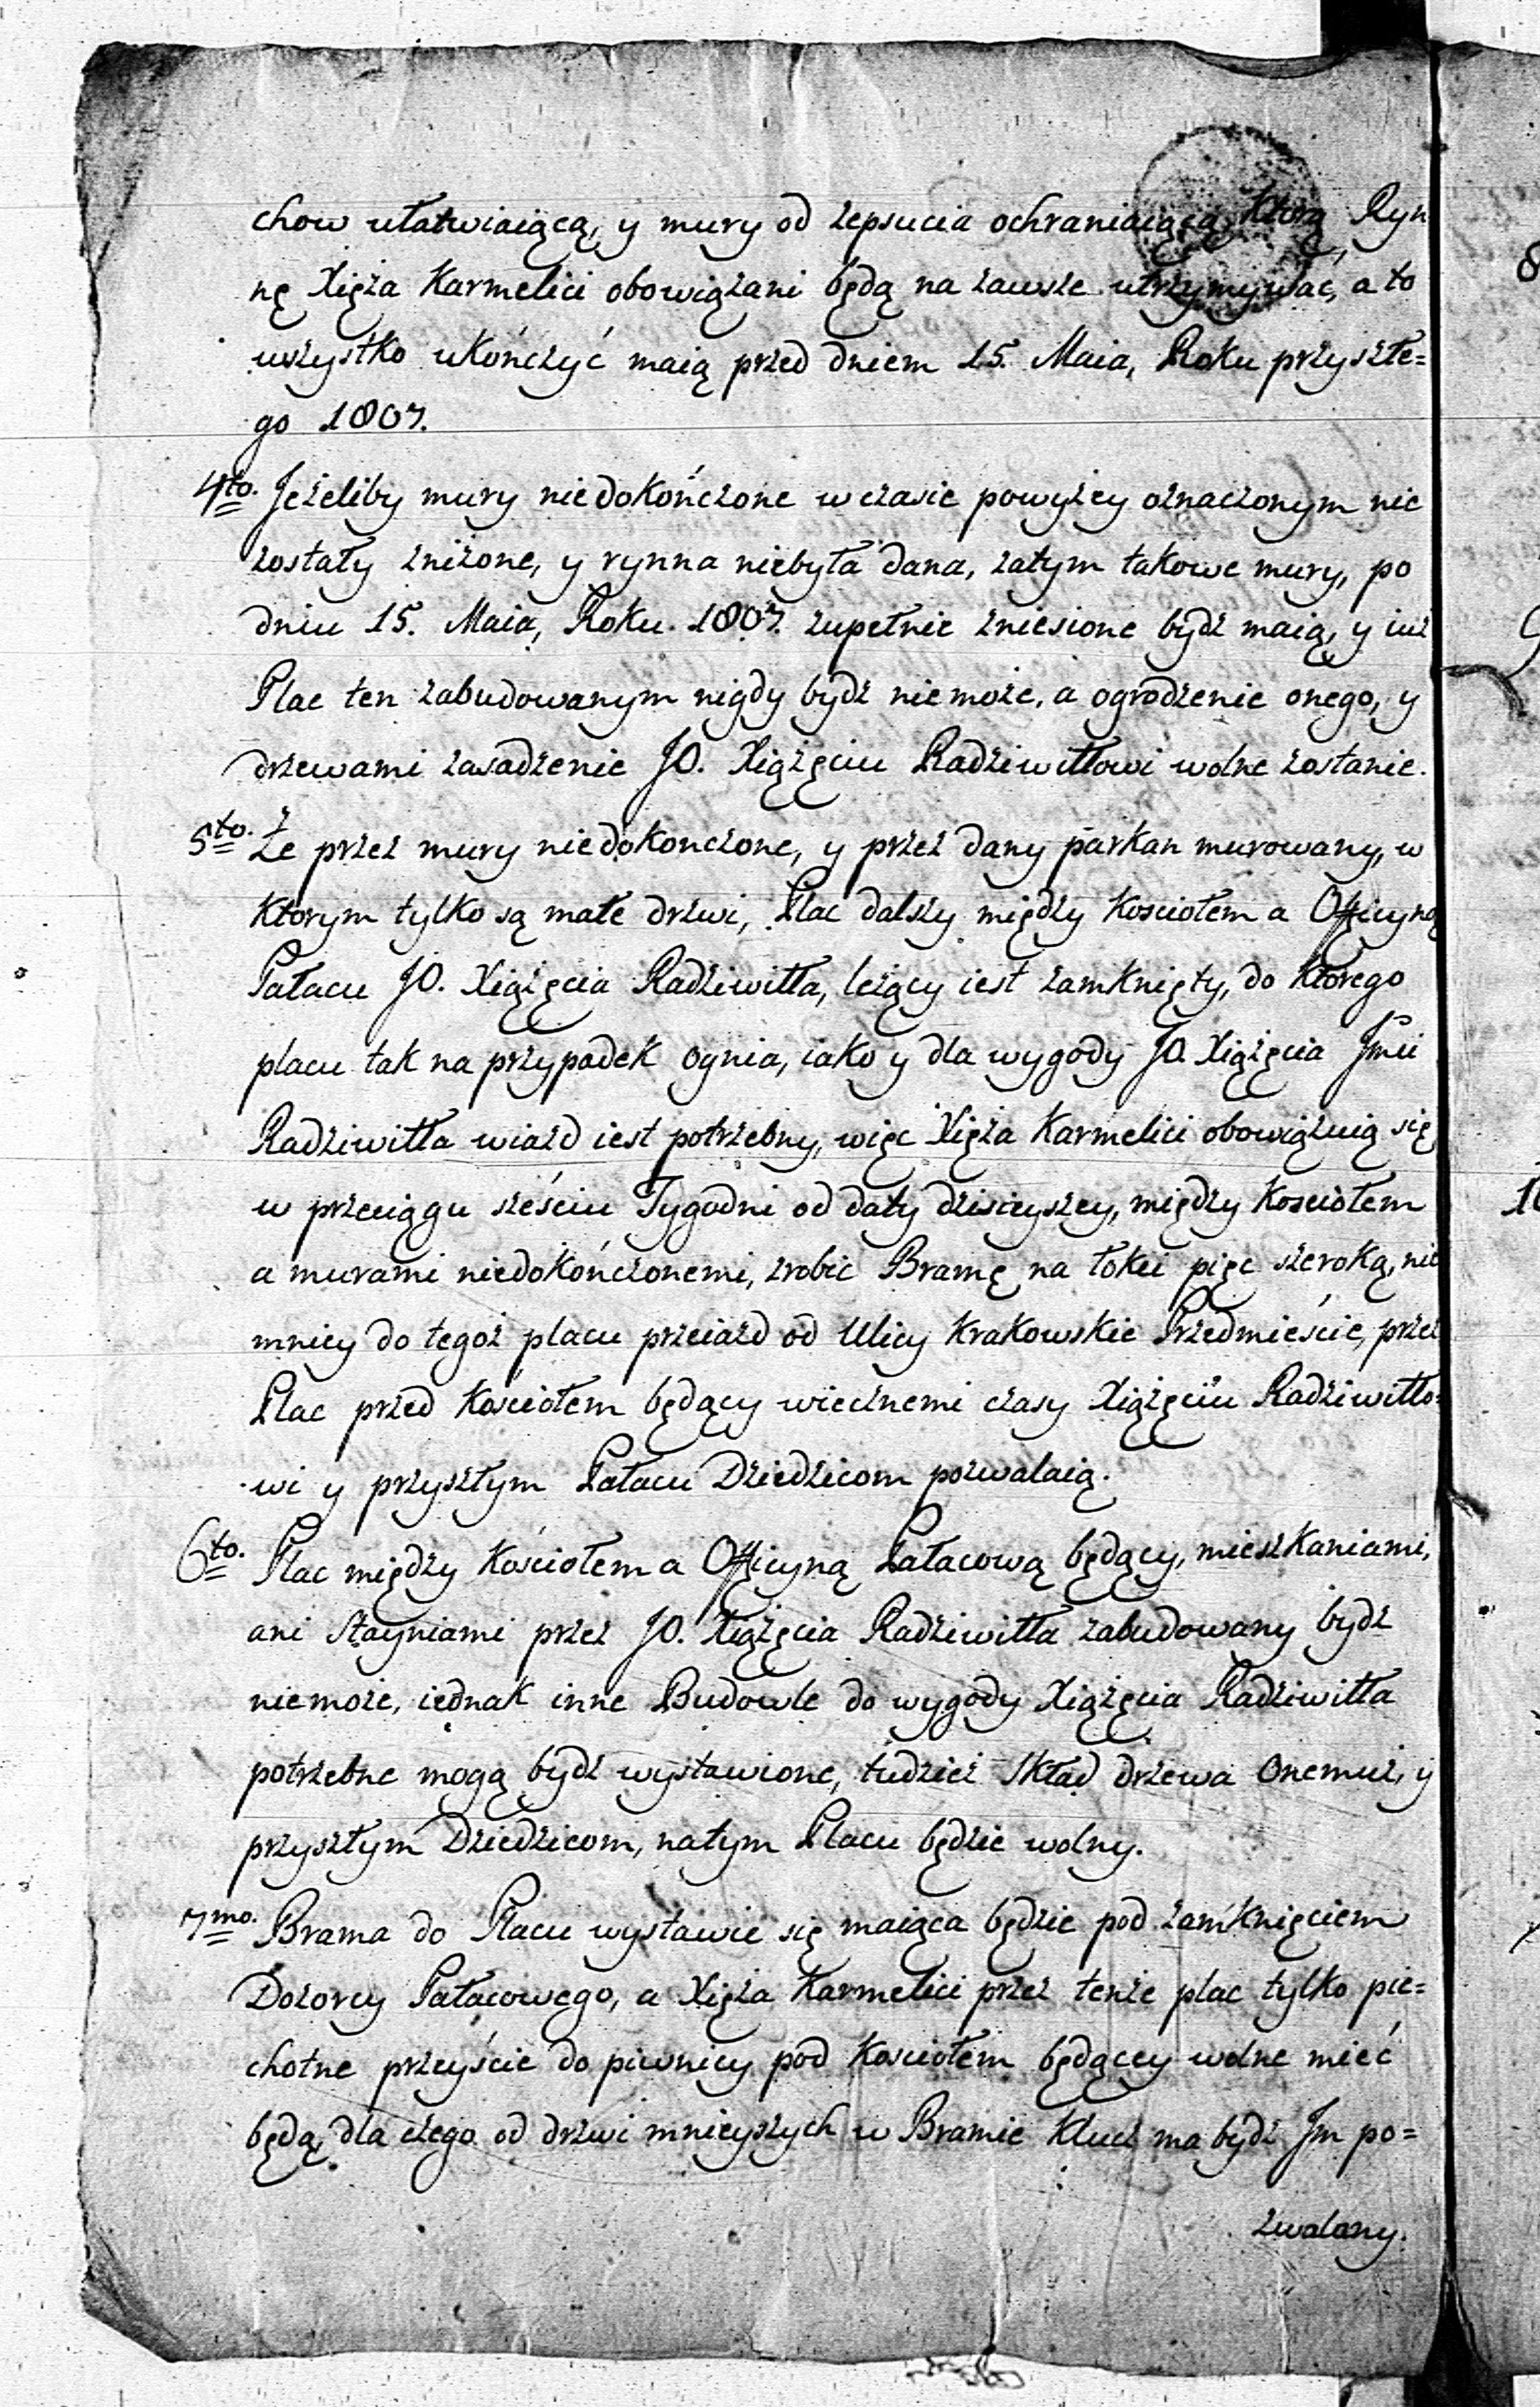 chow ułatwiaiącą, y mury od zepsucia ochraniaiącą którą Ryn
nę Xięża Karmelici obowiązani będą na zawsze utrzymywać, a to
wszystko ukończyć maią przed dniem 15. Maia, Roku przyszłe=
go 1807.
4to. Jeżeliby mury niedokończone w czasie powyżey oznaczonym nie
zostały zniżone, y rynna niebyła dana, zatym takowe mury, po
dniu 15. Maia, Roku. 1807. zupełnie zniesione bydź maią, y iuż
Plac ten zabudowanym nigdy bydź niemoże, a ogrodzenie onego, y
drzewami zasadzenie JO. Xiążęciu Radziwiłłowi wolne zostanie.
5to. Że przez mury niedokonczone, y przez dany parkan murowany, w
ktorym tylko są małe drzwi, Plac dalszy między Kosciołem a Officyną
Pałacu JO. Xiążęcia Radziwiłła, leżący iest zamknięty, do którego
placu tak na przypadek ognia, iako y dla wygody JO. Xiążęcia Jmci
Radziwiłła wiazd iest potrzebny, więc Xięża Karmelici obowiązuią się
w przeciągu sześciu Tygodni od daty dzisieyszey, między Kosciołem
a murami niedokończonemi, zrobic Bramę na łokci pięc szeroką, nie
mniey do tegoż placu przeiazd od Ulicy Krakowskie Przedmieście, przez
Plac przed Kościołem będący wiecznemi czasy Xiążęciu Radziwiłło=
wi y przyszłym Pałacu Dziedzicom pozwalaią.
6to. Plac między Kościołem a Officyną Pałacową będący, mieszkaniami,
ani Stayniami przez JO. Xiążęcia Radziwiłła zabudowany bydź
niemoże, iednak inne Budowle do wygody Xiążęcia Radziwiłła
potrzebne mogą bydź wystawione, tudzież Skład drzewa Onemuż, y
przyszłym Dziedzicom, natym Placu będzie wolny.
7mo. Brama do Placu wystawic się maiąca będzie pod zamknięciem
Dozorcy Pałacowego, a Xięża Karmelici przez tenże plac tylko pie=
chotne przeyście do piwnicy pod Kosciołem będącey wolne mieć
będą, dla czego od drzwi mnieyszych w Bramie Klucz ma bydź Jm po=
zwalany.